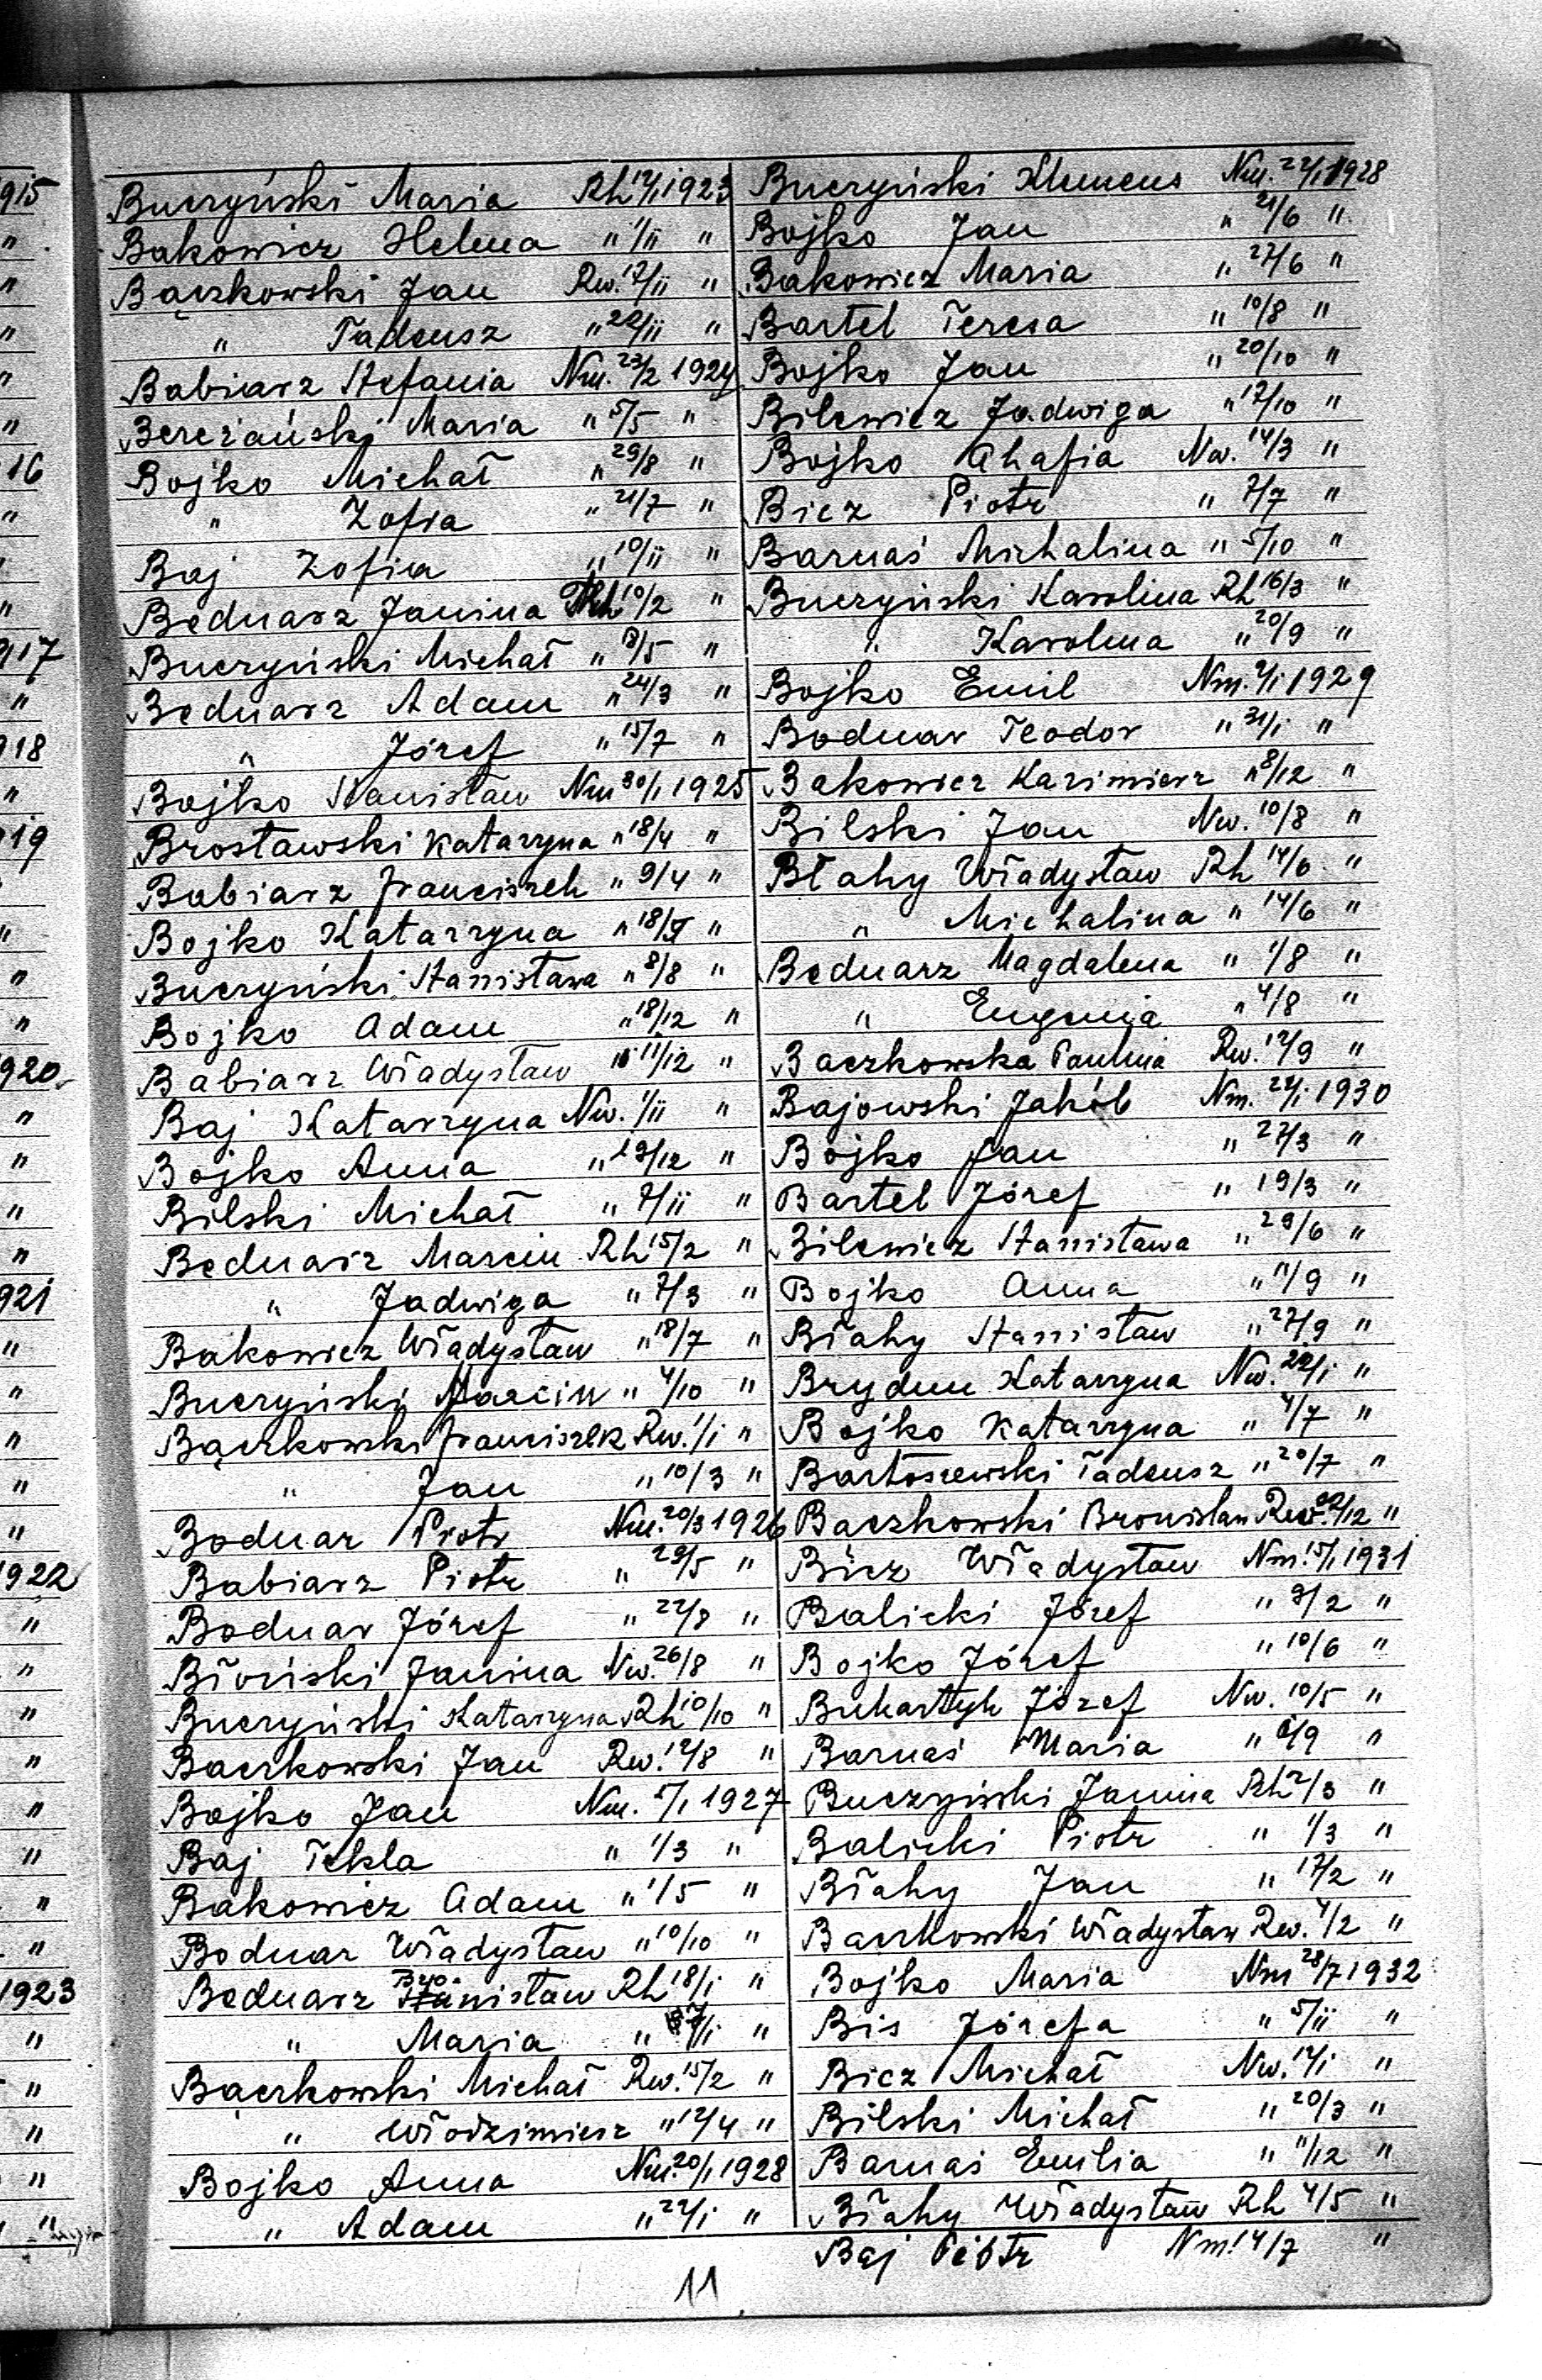 Buczyński Maria Rh 12/1 1923
Bakowicz Helena " 1/11 "
Bączkowski Jan Rw. 17/11 "
" Tadeusz " 22/11 "
Babiarz Stefania Nm. 23/2 1924
Bereżański Maria " 5/5 "
Bojko Michał " 29/8 "
" Zofia " 21/7 "
Baj Zofia " 10/11 "
Bednarz Janina Rh 10/2 "
Buczyński Michał " 8/5 "
Bednarz Adam " 24/3 "
" Józef " 15/7 "
Bojko Stanisław Nm 30/1 1925
Brosławski Katarzyna " 18/4 "
Babiarz Franciszek " 9/4 "
Bojko Katarzyna " "
Buczyński Stanisława " 8/8 "
Bojko Adam " 18/12 "
Babiarz Władysław " 11/12 "
Baj Katarzyna Nw. 1/11 "
Bojko Anna " 19/12 "
Bilski Michał " 7/11 "
Bednarz Marcin Rh 15/2 "
" Jadwiga " 7/3 "
Bakowicz Władysław " 18/7 "
Buczyński Marcin " 4/10 "
Bączkowski Franciszek Rw. 1/1 "
" Jan " 10/3 "
Bodnar Piotr Nm. 20/3 1926
Babiarz Piotr " 29/5 "
Bodnar Józef " 22/8 "
Błoński Janina Nw. 26/8 "
Buczyński Katarzyna Rh 10/10 "
Baczkowski Jan Rw. 12/8 "
Bojko Jan Nm. 5/1 1927
Baj Tekla " 1/3 "
Bakowicz Adam " 1/5 "
Bodnar Władysław " 10/10 "
Bednarz Bro-nisław Rh 18/1 "
" Maria " "
Bączkowski Michał Rw. 15/2 "
" Włodzimierz " 12/4 "
Bojko Anna Nm. 20/1 1928
" Adam " 22/1 "
Buczyński Klemens Nm. 22/1 1928
Bojko Jan " 21/6 "
Bakowicz Maria " 27/6 "
Bartel Teresa " 10/8 "
Bojko Jan " 20/10 "
Bilewicz Jadwiga " 17/10 "
Bojko Ahafia Nw. 14/3 "
Bicz Piotr " 7/7 "
Barnaś Michalina " 5/10 "
Buczyński Karolina Rh 16/3 "
" Karolina " 20/9 "
Bojko Emil Nm. 2/1 1929
Bodnar Teodor " 31/1 "
Bakowicz Kazimierz " 8/12 "
Bilski Jan Nw. 10/8 "
Błahy Władysław Rh 14/6 "
" Michalina " 14/6 "
Bednarz Magdalena " 1/8 "
" Eugenia " 4/8 "
Baczkowska Paulina Rw. 12/9 "
Bajowski Jakób Nm. 22/1 1930
Bojko Jan " 27/3 "
Bartel Józef " 19/3 "
Bilewicz Stanisława " 29/6 "
Bojko Anna " 11/9 "
Błahy Stanisław " 27/9 "
Brydun Katarzyna Nw. 22/1 "
Bojko Katarzyna " 4/7 "
Bartoszewski Tadeusz " 20/7 "
Baczkowski Bronisław Rw. "
Bicz Władysław Nm. 15/1 1931
Balicki Józef " 9/2 "
Bojko Józef " 10/6 "
Buhartyk Józef Nw. 10/5 "
Barnaś Maria " 6/9 "
Buczyński Janina Rh 2/3 "
Balicki Piotr " 1/3 "
Błahy Jan " 17/2 "
Baczkowski Władysław Rw. 4/2 "
Bojko Maria Nm 28/7 1932
Bis Józefa " 5/11 "
Bicz Michał Nw. 12/1 "
Bilski Michał " 20/3 "
Barnaś Emilia " 11/12 "
Błahy Władysław Rh 4/5 "
Baj Piotr Nm. 14/7 "
11
915
"
"
"
"
"
16
"
"
"
917
"
918
"
919
"
"
"
920
"
"
"
"
921
"
"
"
"
"
1922
"
"
"
"
"
"
"
"
1923
"
"
"
"
"